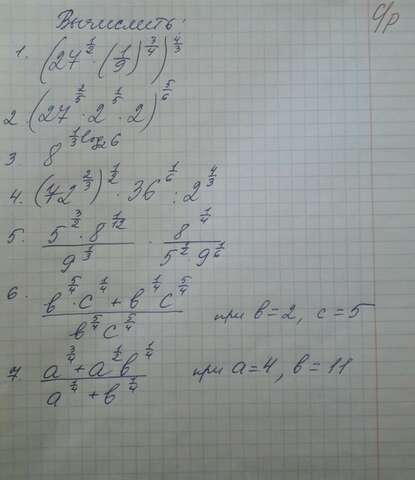 Вычислить:
С/р
1. (27^{1/2} · (1/9)^{3/4})^{4/3}
2. (27^{2/5} · 2^{1/5} · 2)^{5/6}
3. 8^{1/3 log_2 6}
4. (72^{2/3})^{1/2} · 36^{1/6} : 2^{4/3}
5. \frac{5^{3/2} · 8^{1/12}}{9^{1/3}} · \frac{8^{1/4}}{5^{1/2} · 9^{1/6}}
6. \frac{в^{5/4} · с^{1/4} + в^{1/4} с^{5/4}}{в^{5/4} с^{5/4}} при в = 2, с = 5
7. \frac{а^{3/4} + а^{1/2} в^{1/4}}{а^{1/4} + в^{1/4}} при а = 4, в = 11